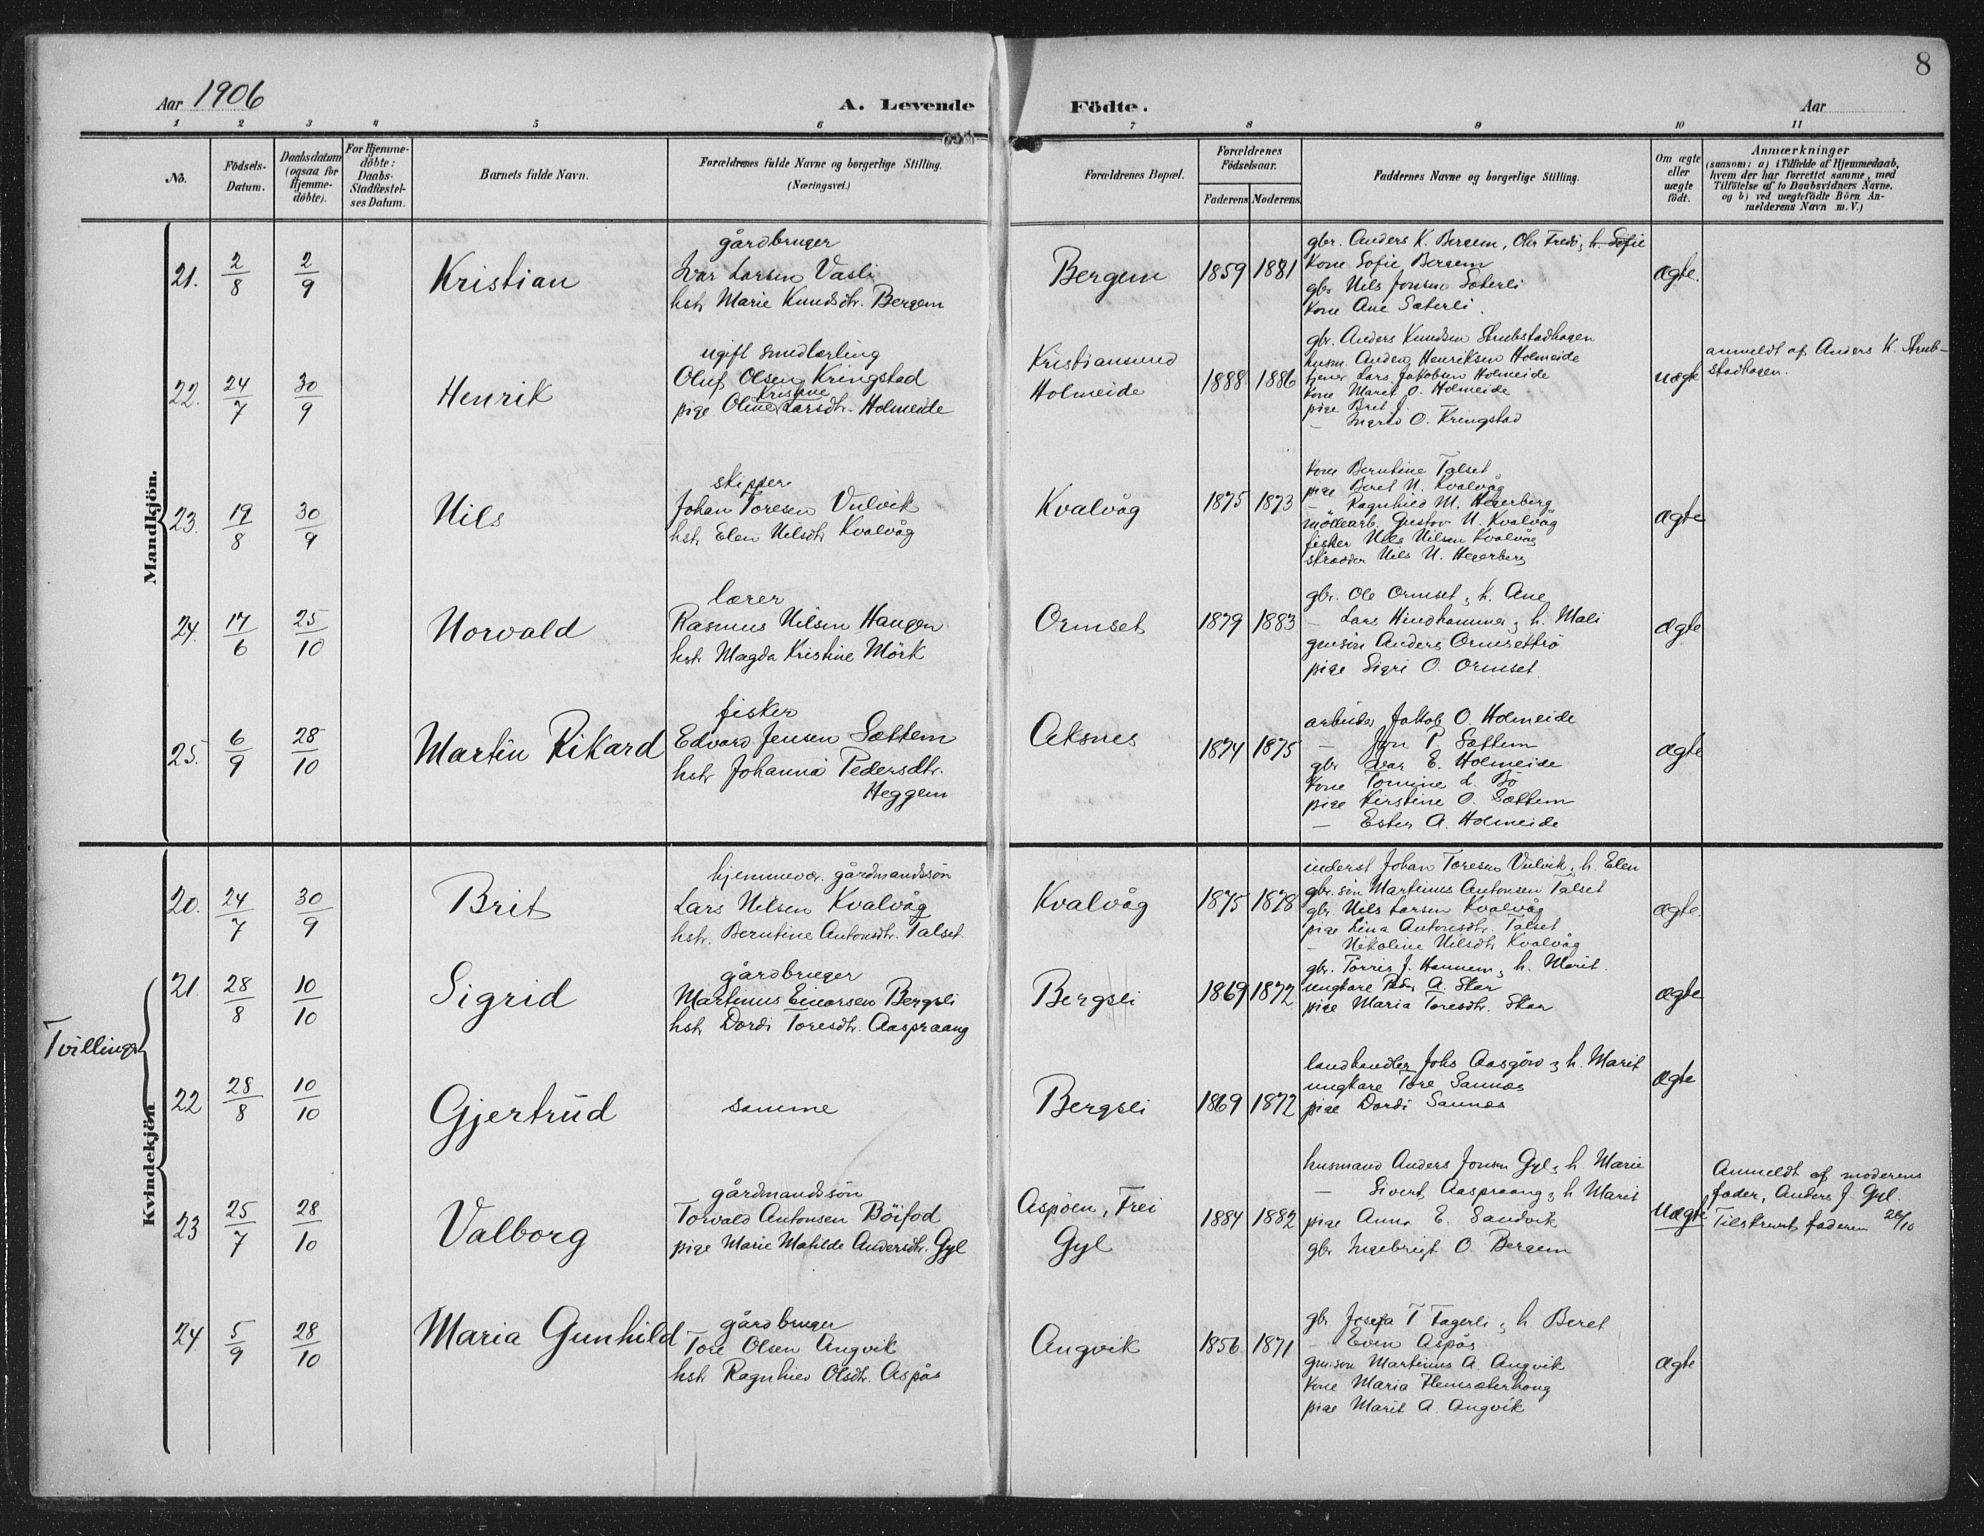 8
Aar 1906
A. Levende Födte.
Aar
1 2 3 4 5 6 7 8 9 10 11
No.
Födsels-Datum.
Daabsdatum (ogsaa for Hjemme-döbte).
For Hjemme-döbte: Daabs-Stadfæstel-ses Datum.
Barnets fulde Navn.
Forældrenes fulde Navne og borgerlige Stilling.
(Næringsvei.)
Forældrenes Bopæl.
Forældrenes Födselsaar.
Faderens Moderens
Faddernes Navne og borgerlige Stilling.
Om ægte eller uægte födt.
Anmærkninger
(saasom: a) i Tilfælde af Hjemmedaab,
hvem der har forrettet samme, med
Tilföielse af to Daabsvidners Navne.
og b) ved uægtefödte Börn An-
melderens Navn m. V.)
Mandkjön.
21. 2/8 2/9 Kristian
gårdbruger
Ivar Larsen Vasli
hstr. Marie Knudsdtr. Bergem
Bergem 1859 1881
gbr. Anders K. Bergem, h. Sofie
Kone Sofie Bergem
gbr Nils Jonsen Sæterli
Kone Ane Sæterli.
ægte.
22. 24/7 30/9 Henrik
ugift smedlærling
Oluf Olsen Kringstad
Kristine
pige Oline Larsdtr. Holmeide
Kristiansund
Holmeide
1888 1886
gbr. Anders Knudsen Strubstadhagen
husm. Anders Henriksen Holmeide
tjener Lars Jakobsen Holmeide
Kone Marit O. Holmeide
pige Brit J.
— Ingrid O. Kringstad
uægte
anmeldt af Anders K. Strub-
stadhagen.
23. 19/8 30/9 Nils
skipper
Johan Toresen Vulvik
hstr. Elen Nilsdtr Kvalvåg
Kvalvåg 1875 1873
Kone Berntine Talset
pige Beret N. Kvalvåg
— Ragnhild M. Hegerberg
möllearb. Gustav N. Kvalvåg
fisker Nils Nilsen Kvalvåg
skrædder Nils N. Hegerberg
ægte
24. 17/6 25/10 Norvald
lærer
Rasmus Nilsen Haugen
hstr. Magda Kristine Mörk
Ormset 1879 1883
gbr. Ole Ormset, h. Ane
— Lars Hindhammer, h. Mali
gmsön Anders Ormsettrö
pige Sigri O. Ormset.
ægte
25. 6/9 28/10 Martin Rikard
fisker
Edvard Jensen Sættem
hstr Johanna Pedersdtr.
Heggem
Aksnes
1874 1875
arbeider Jakob O. Holmeide
— Jon P. Sættem
gbr Ivar E. Holmeide
Kone Tomine L. Bö
pige Kirstine O. Sættem
— Ester A. Holmeide
ægte
Kvindekjön
20. 24/7 30/9 Brit
hjemmevær. gårdmandssön
Lars Nilsen Kvalvåg
hstr. Berntine Antonsdtr. Talset.
Kvalvåg 1875 1878
inderst Johan Toresen Vulvik, h. Elen
gbr.sön Martinus Antonsen Talset
gbr. Nils Larsen Kvalvåg
pige Lina Antonsdtr. Talset
— Nikoline Nilsdtr Kvalvåg
ægte.
Tvillinger
21. 28/8 10/10 Sigrid
gårdbruger
Martinus Einarsen Bergsli
hstr Dordi Toresdtr. Aaspraang
Bergsli 1869 1872
gbr. Torris J. Hannem, h. Marit.
ungkare Peder A. Skar
pige Maria Toresdtr. Skar
ægte
22 28/8 10/10 Gjertrud
samme
Bergsli 1869 1872
landhandler Johs Aasgård, h. Marit
ungkare Tore Sannes
pige Dordi Sannes
ægte
23 25/7 28/10 Valborg
gårdmandssön
Torvald Antonsen Böifod
pige Marie Matilde Andersdtr. Gyl
Aspöen, Frei
Gyl
1884 1882
husmand Anders Jonsen Gyl, h. Marie
— Sivert Aaspraang, h Marit
pige Anna E. Sandvik
gbr Ingebrigt O. Bergem
uægte
Anmeldt af moderens
fader, Anders J. Gyl.
Tilskrevet faderen 26/10
24 5/9 28/10 Maria Gunhild
gårdbruger
Tore Olsen Angvik
hstr Ragnhild Olsdtr. Aspås
Angvik 1856 1871
gbr Josefa T Fagerli, h Beret
— Even Aspås
gm.sön Martinus A. Angvik
Kone Maria Flemsæterhaug
pige Marit A. Angvik
ægte